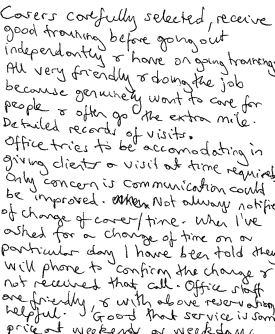 Carers carefully selected, receive
good training before going out
independently & have on going training
All very friendly & doing the job
because genuinely want to care for
people & often go the extra mile.
Detailed records of visits.
Office tries to be accomodating in
giving clients a visit at time required
Only concern is communication could
be improved. Not always notifie
of change of carer/time. When I've
asked for a change of time on a
particular day I have been told they
will phone to confirm the change &
not received that call. Office staff
are friendly & with above reservation
helpful. Good that service is sam
price at weekends as weekdays